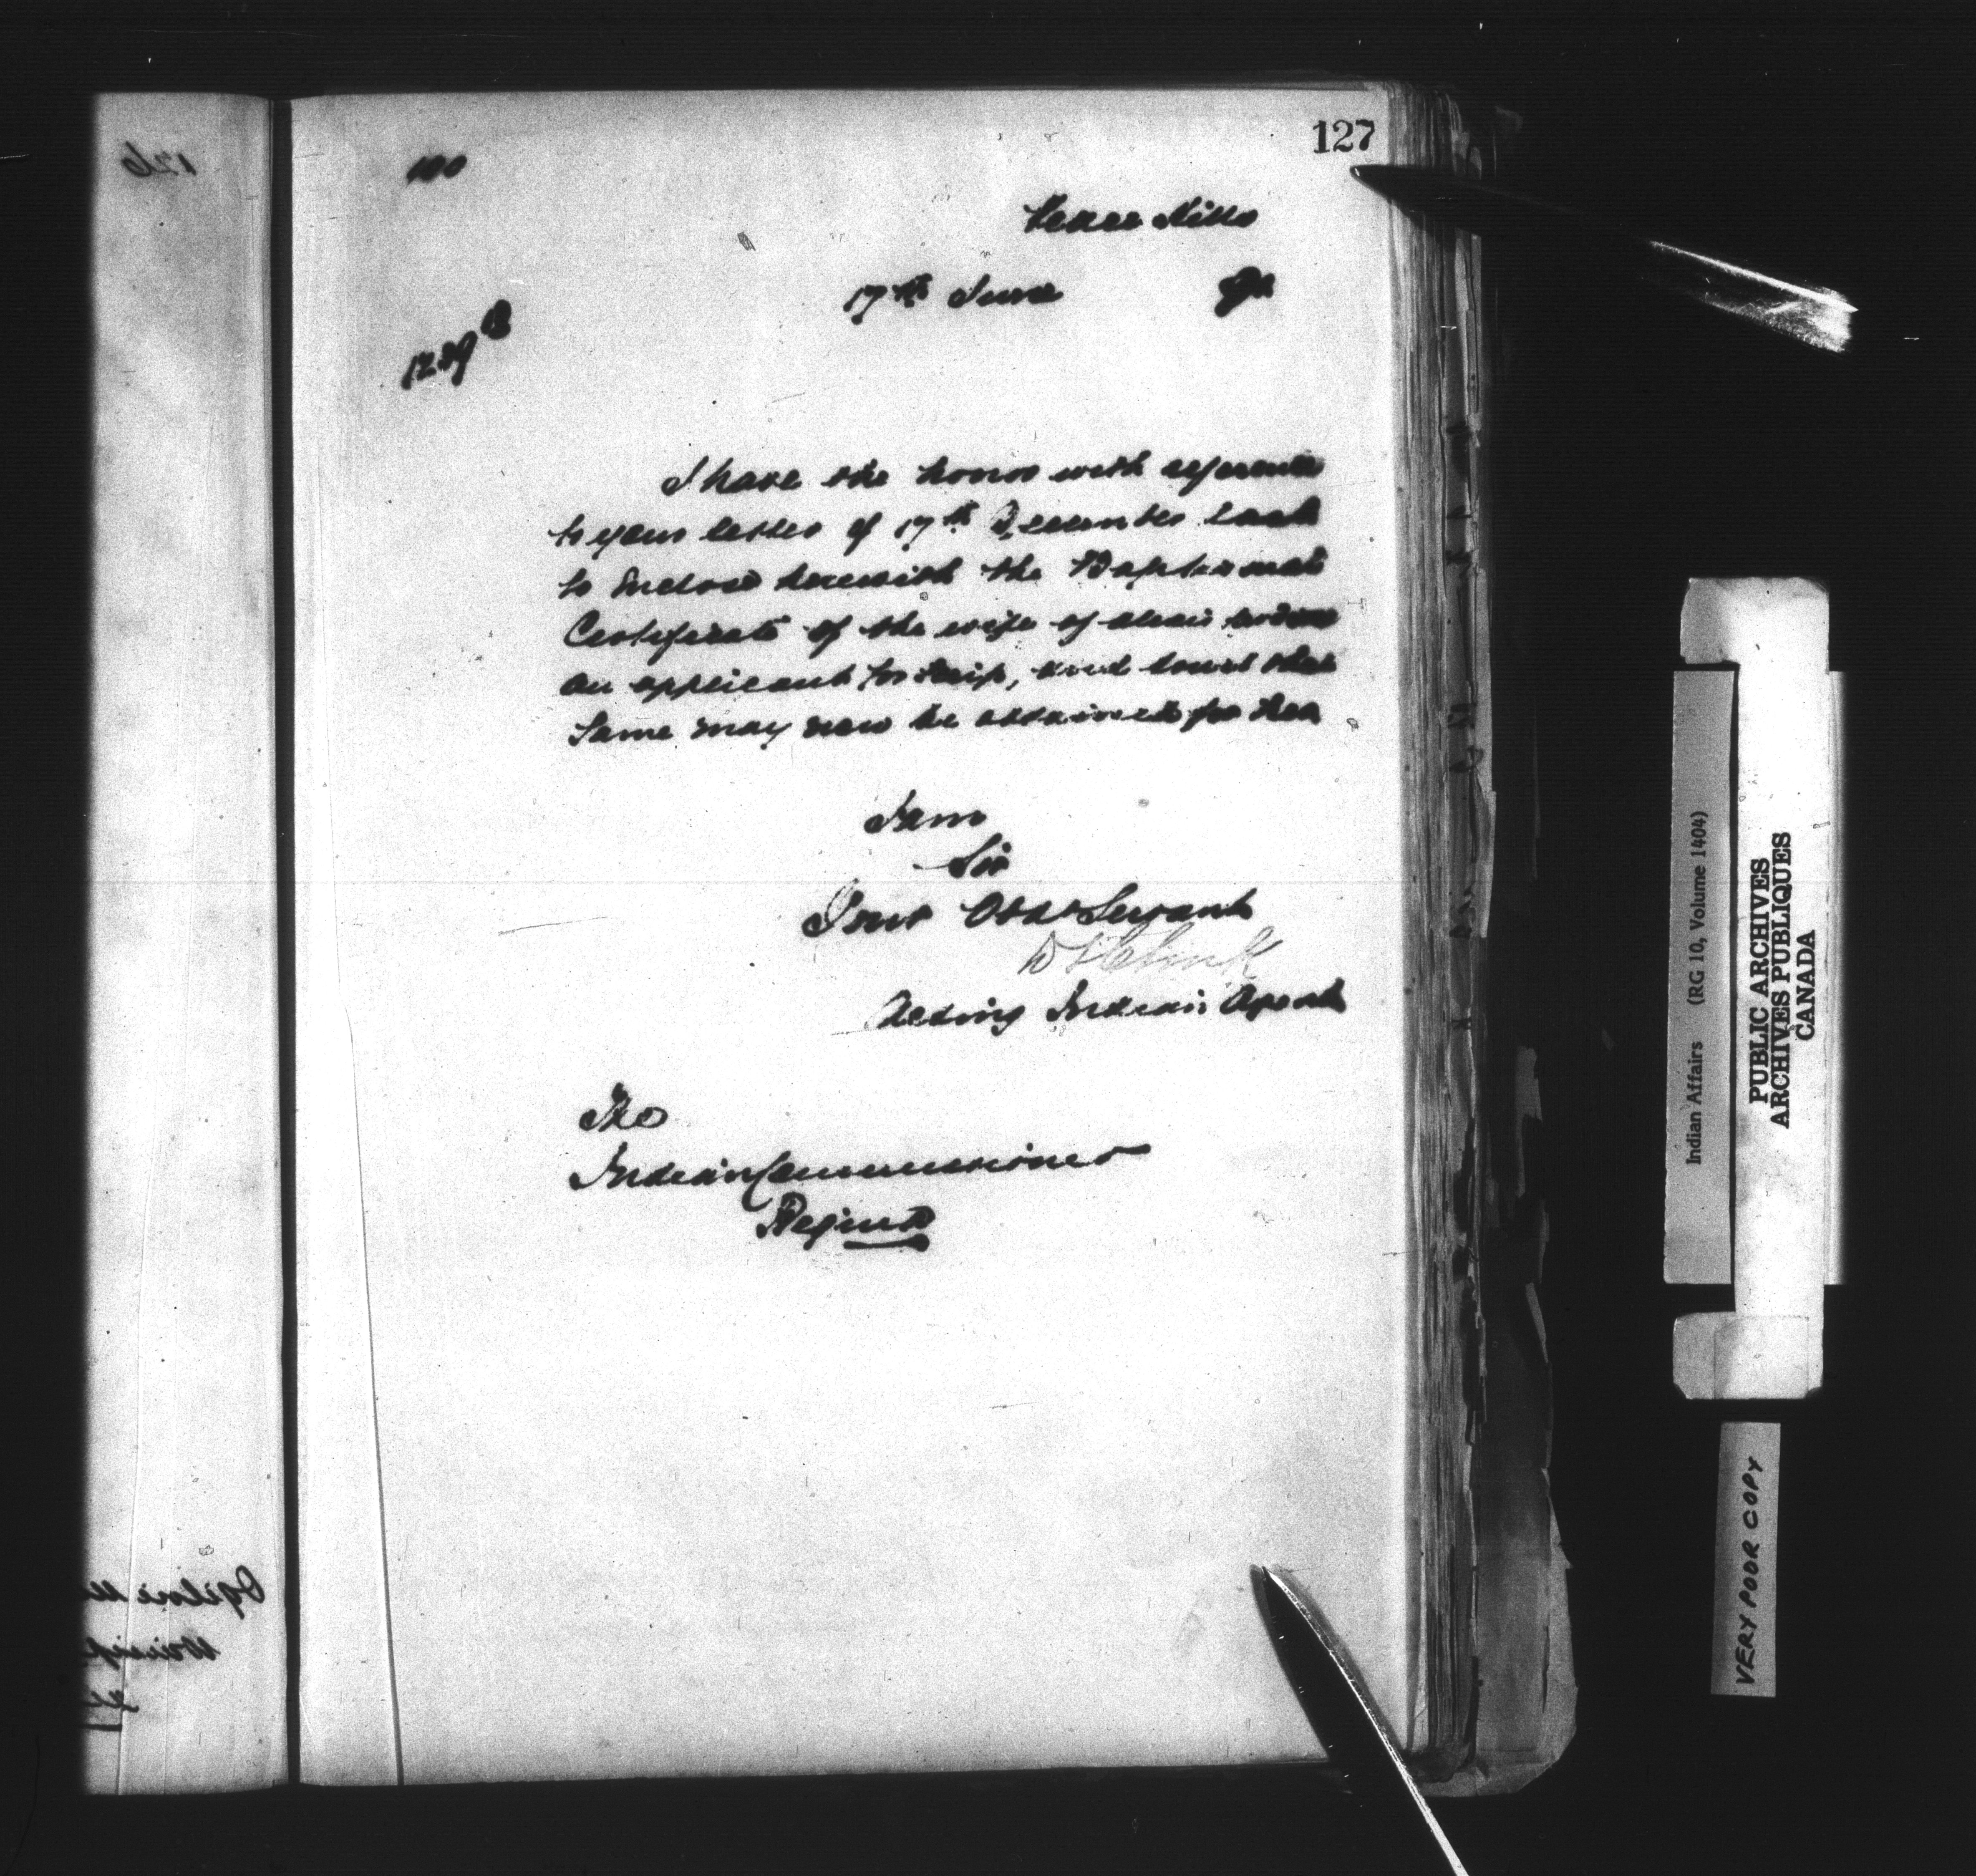 127
Peace Hills
17th June 92
1239 B
I have the honor with reference
to your letter of 17th December last
to Enclose herewith the Baptismal
Certificate of the wife of
an applicant for Scrip, and trust that
Same may now be obtained for her
I am
Sir
Your Obdt Servant
D L Clink
Acting Indian Agent
The
Indian Commissioner
Regina
126
Indian Affairs (RG 10, Volume 1404)
PUBLIC ARCHIVES
ARCHIVES PUBLIQUES
CANADA
VERY POOR COPY